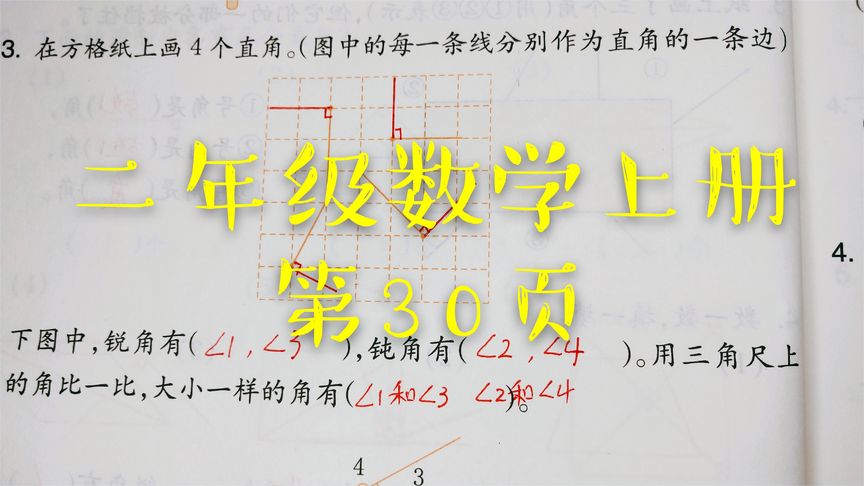 3. 在方格纸上画4个直角。(图中的每一条线分别作为直角的一条边)
二年级数学上册
第30页
4.
下图中,锐角有( ∠1,∠3 ),钝角有( ∠2,∠4 )。用三角尺上
的角比一比,大小一样的角有(∠1和∠3 ∠2和∠4)。
4
3